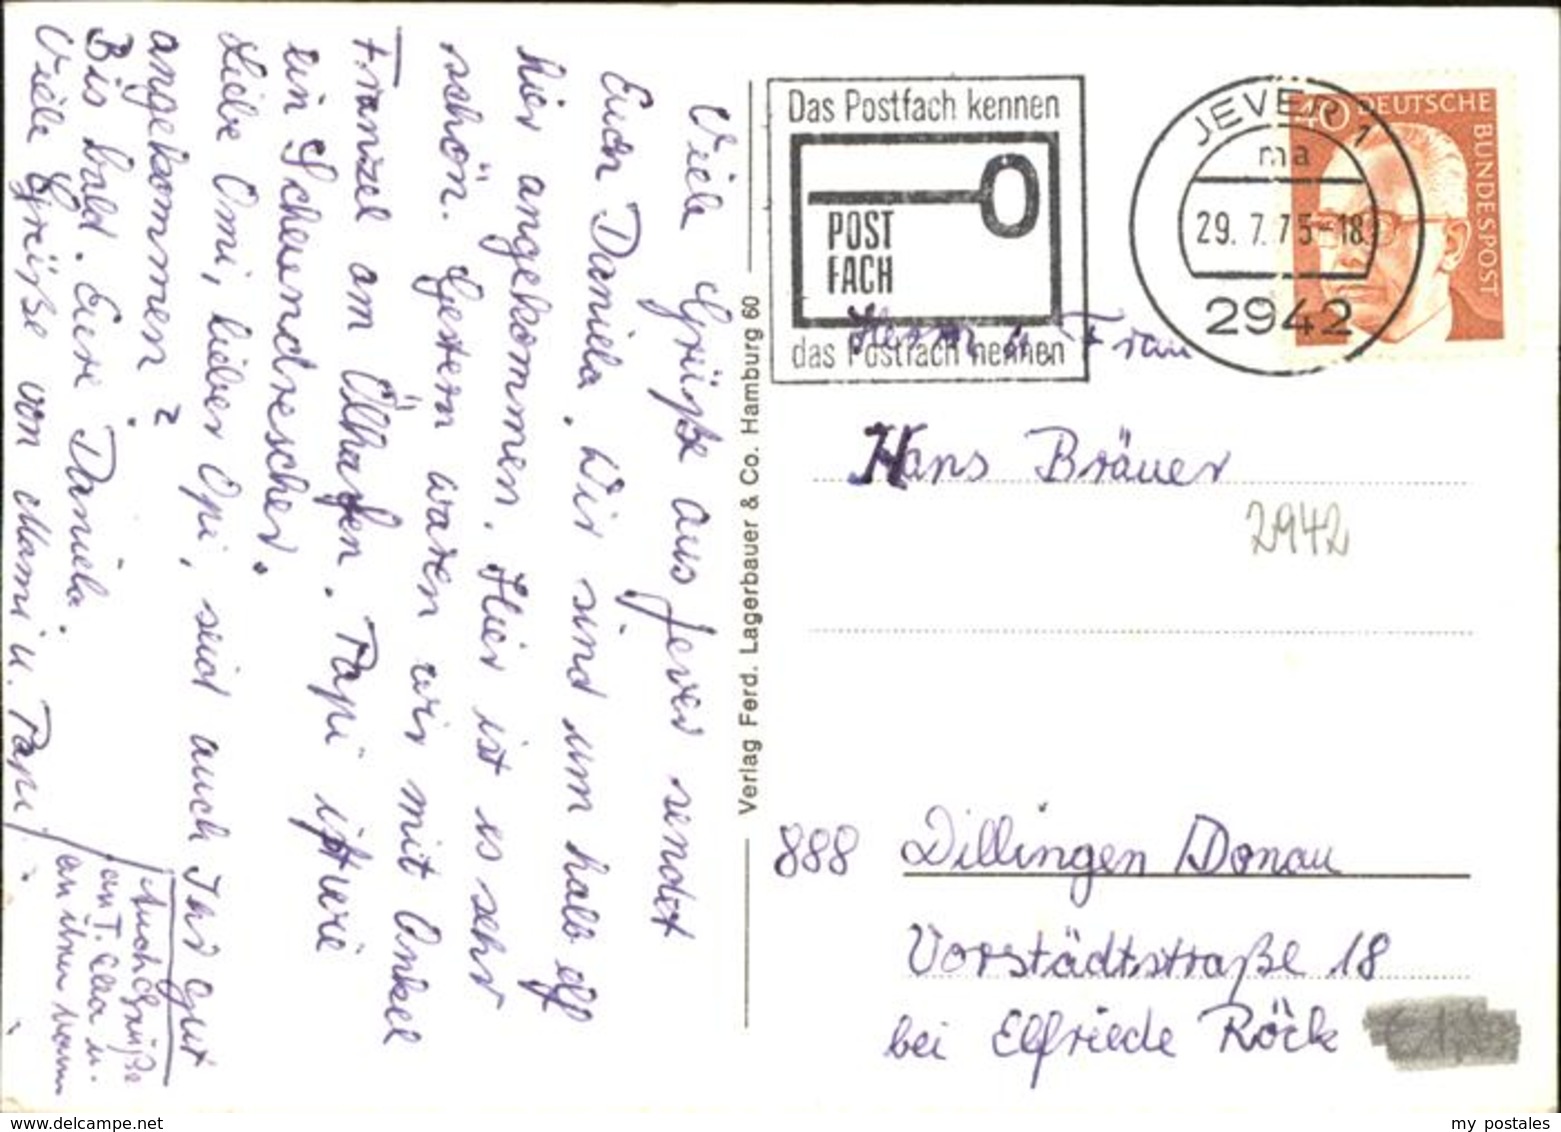 Viele Grüße aus Jever sendet
Euch Daniela. Wir sind um halb elf
hier angekommen. Hier ist es sehr
schön. Gestern waren wir mit Onkel
Franzel am Ölhafen. Papi
ein Scheendrescher."
Liebe Omi, lieber Opi, seid auch Ihr gut
angekommen?
Bis bald. Eure Daniela.
Viele Grüße von Mami u. Papi
Auch Grüße
an T. u.
an ihren Mann
Verlag Ferd. Lagerbauer & Co. Hamburg 60
Das Postfach kennen
POST
FACH
das Postfach nennen
JEVER 1
ma
29. 7. 75-18
2942
40 DEUTSCHE
BUNDESPOST
Herrn u. Frau
Hans Bräuer
2942
888 Dillingen / Donau
Vorstädtstraße 18
bei Elfriede Röck
www.delcampe.net
my_postales